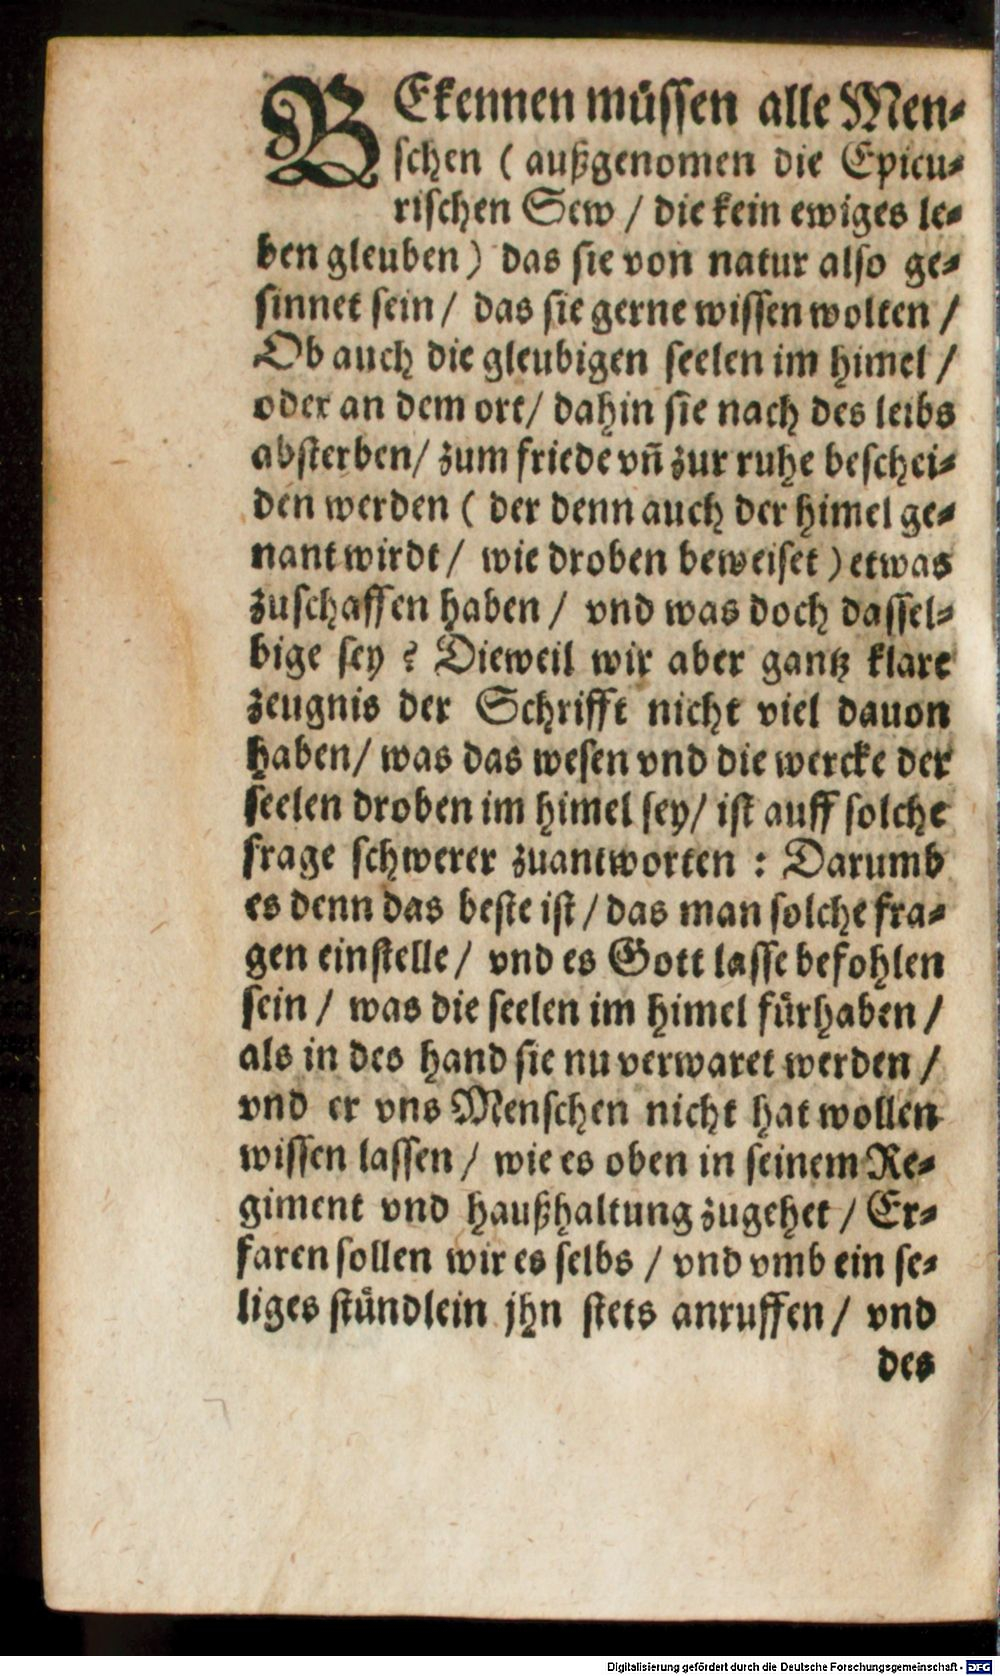 BEkennen müssen alle Men-
schen (außgenomen die Epicu-
rischen Sew / die kein ewiges le-
ben gleuben) das sie von natur also ge-
sinnet sein / das sie gerne wissen wolten /
Ob auch die gleubigen seelen im himel /
oder an dem ort / dahin sie nach des leibs
absterben / zum friede vñ zur ruhe beschei-
den werden (der denn auch der himel ge-
nant wirdt / wie droben beweiset) etwas
zuschaffen haben / vnd was doch dassel-
bige sey ? Dieweil wir aber gantz klare
zeugnis der Schrifft nicht viel dauon
haben / was das wesen vnd die wercke der
seelen droben im himel sey / ist auff solche
frage schwerer zuantworten : Darumb
es denn das beste ist / das man solche fra-
gen einstelle / vnd es Gott lasse befohlen
sein / was die seelen im himel fürhaben /
als in des hand sie nu verwaret werden /
vnd er vns Menschen nicht hat wollen
wissen lassen / wie es oben in seinem Re-
giment vnd haußhaltung zugehet / Er-
faren sollen wir es selbs / vnd vmb ein se-
liges stündlein jhn stets anruffen / vnd
des
Digitalisierung gefördert durch die Deutsche Forschungsgemeinschaft - DFG